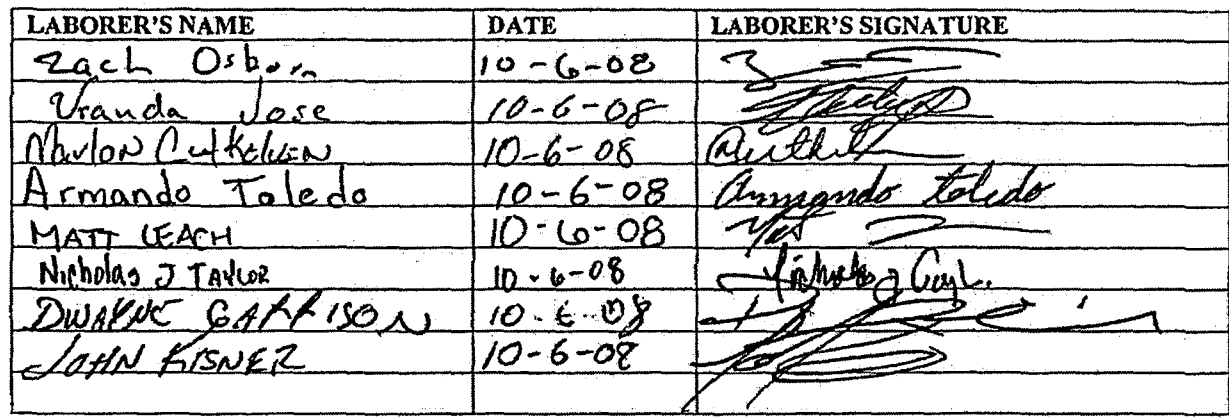 LABORER'S NAME DATE LABORER'S SIGNATURE
Zach Osborn 10-6-08
Vranda Jose 10-6-08
Marlon 10-6-08
Armando Toledo 10-6-08 Armando toledo
MATT LEACH 10-6-08
Nicholas J TAYLOR 10-6-08 Nicholas J
DWAYNE GARRISON 10-6-08
JOHN KISNER 10-6-08